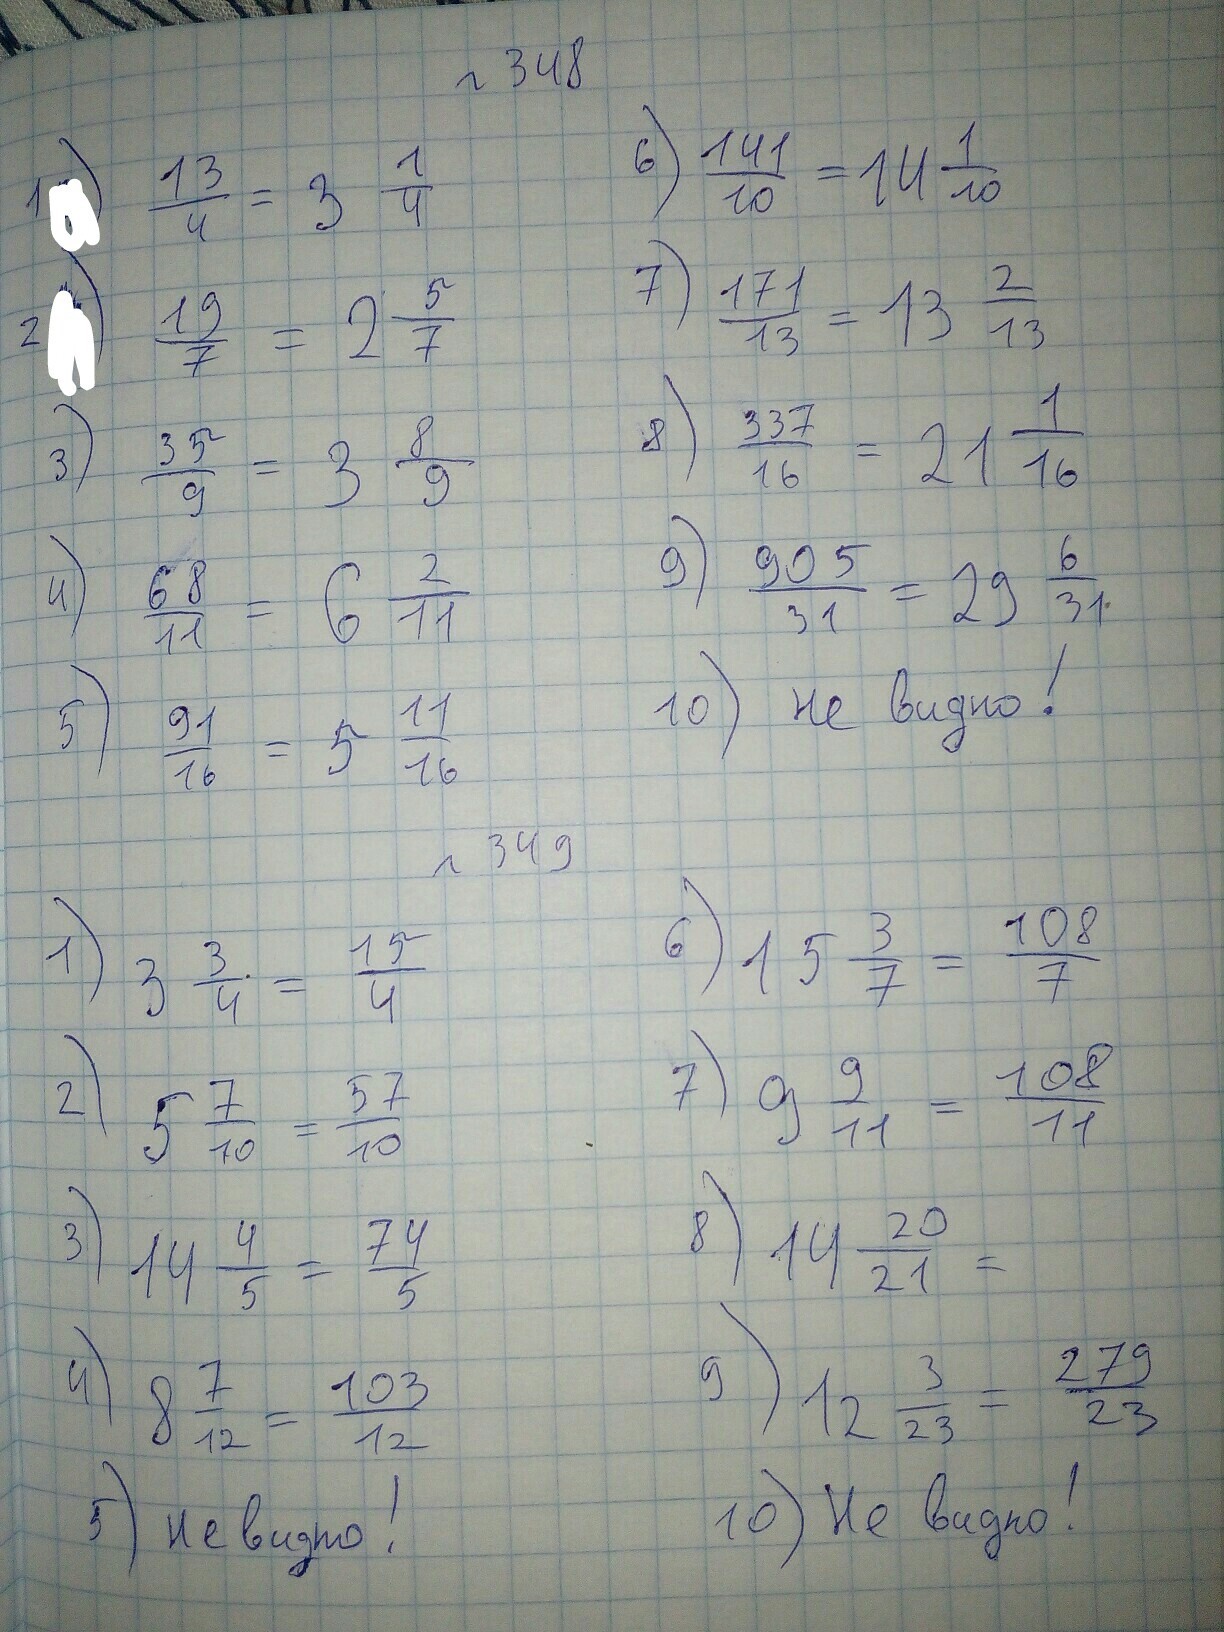 ~ 348
1) 13/4 = 3 1/4
2) 19/7 = 2 5/7
3) 35/9 = 3 8/9
4) 68/11 = 6 2/11
5) 91/16 = 5 11/16
6) 141/10 = 14 1/10
7) 171/13 = 13 2/13
8) 337/16 = 21 1/16
9) 905/31 = 29 6/31
10) Не видно!
~ 349
1) 3 3/4 = 15/4
2) 5 7/10 = 57/10
3) 14 4/5 = 74/5
4) 8 7/12 = 103/12
5) Не видно!
6) 15 3/7 = 108/7
7) 9 9/11 = 108/11
8) 14 20/21 =
9) 12 3/23 = 279/23
10) Не видно!